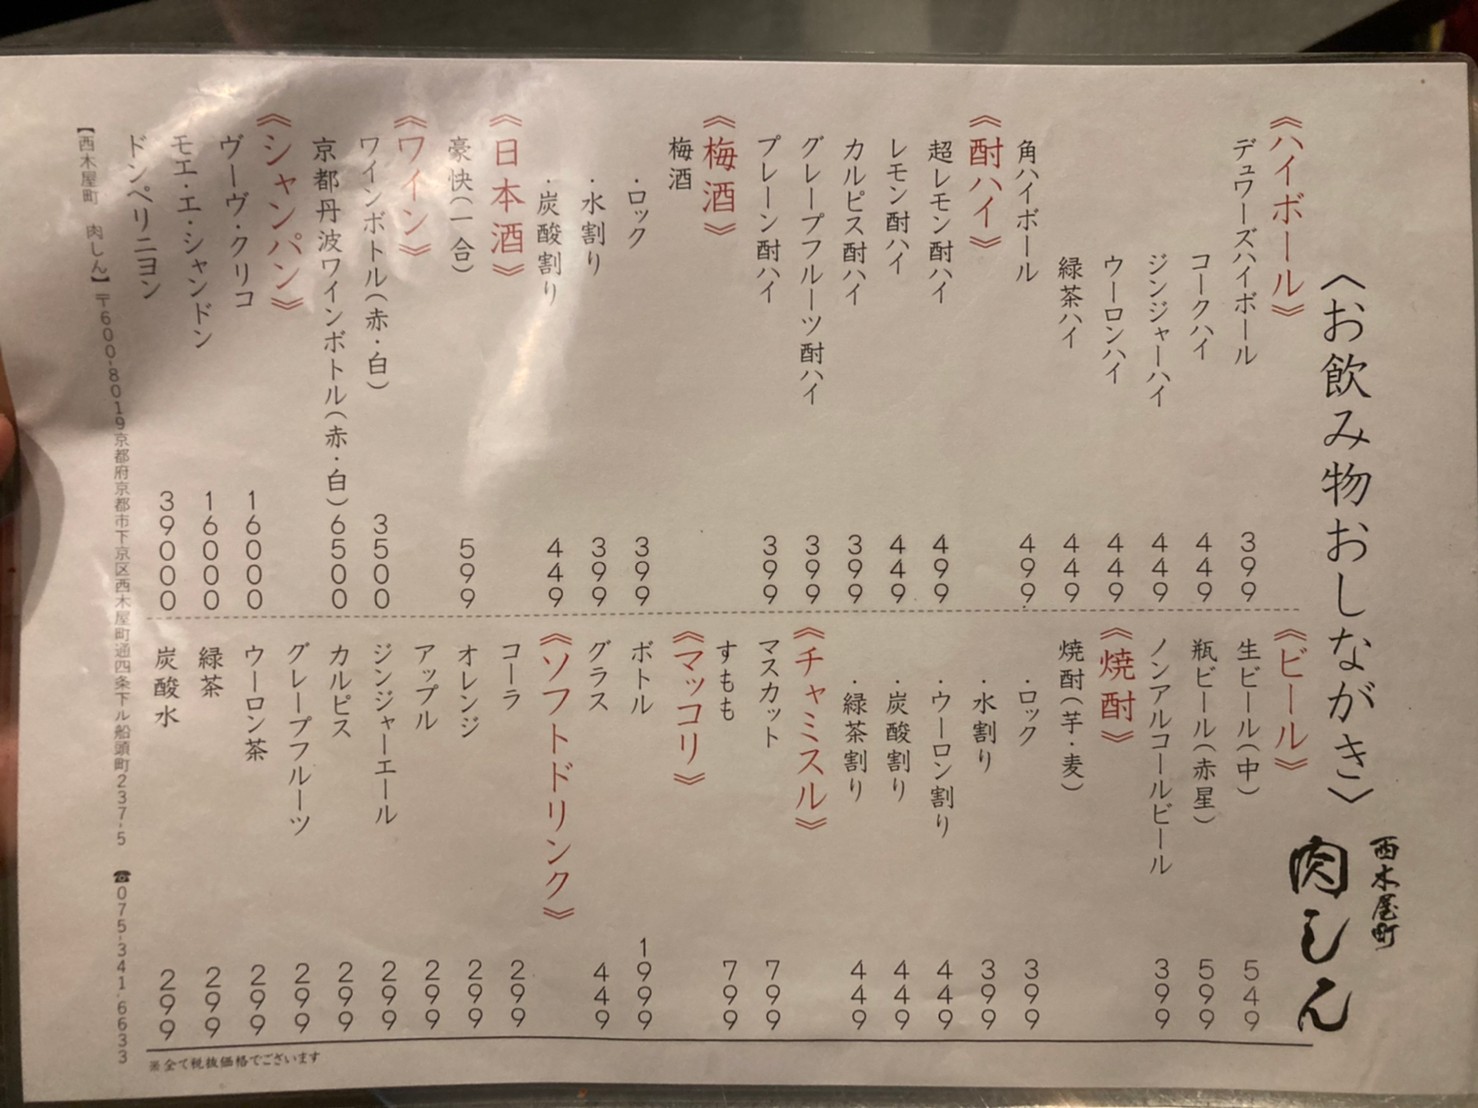 〈お飲み物おしながき〉
西木屋町
肉しん
《ハイボール》
デュワーズハイボール 399
コークハイ 449
ジンジャーハイ 449
ウーロンハイ 449
緑茶ハイ 449
角ハイボール 499
《酎ハイ》
超レモン酎ハイ 499
レモン酎ハイ 449
カルピス酎ハイ 399
グレープフルーツ酎ハイ 399
プレーン酎ハイ 399
《梅酒》
梅酒
・ロック 399
・水割り 399
・炭酸割り 449
《日本酒》
豪快(一合) 599
《ワイン》
ワインボトル(赤・白) 3500
京都丹波ワインボトル(赤・白) 6500
《シャンパン》
ヴーヴ・クリコ 16000
モエ・エ・シャンドン 16000
ドンペリニヨン 39000
《ビール》
生ビール(中) 549
瓶ビール(赤星) 599
ノンアルコールビール 399
《焼酎》
焼酎(芋・麦)
・ロック 399
・水割り 399
・ウーロン割り 449
・炭酸割り 449
・緑茶割り 449
《チャミスル》
マスカット 799
すもも 799
《マッコリ》
ボトル 1999
グラス 449
《ソフトドリンク》
コーラ 299
オレンジ 299
アップル 299
ジンジャーエール 299
カルピス 299
グレープフルーツ 299
ウーロン茶 299
緑茶 299
炭酸水 299
※全て税抜価格でございます
【西木屋町 肉しん】〒600-8019京都府京都市下京区西木屋町通四条下ル船頭町237-5 ☎075-341-6633